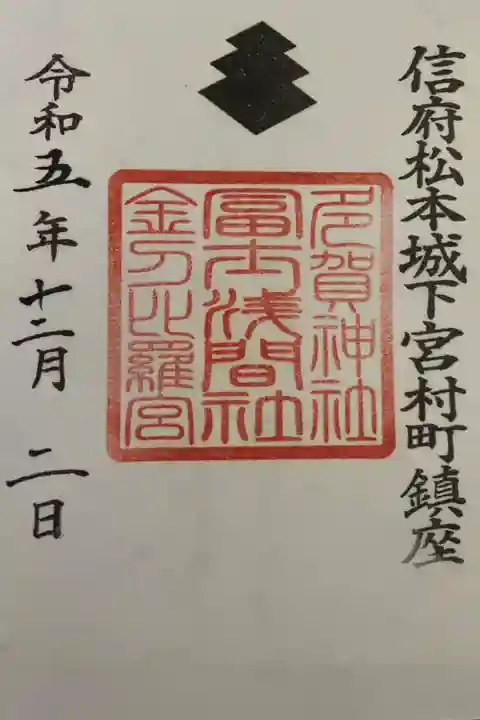 信府松本城下宮村町鎮座
多賀神社
冨士浅間社
金刀比羅宮
令和五年十二月二日